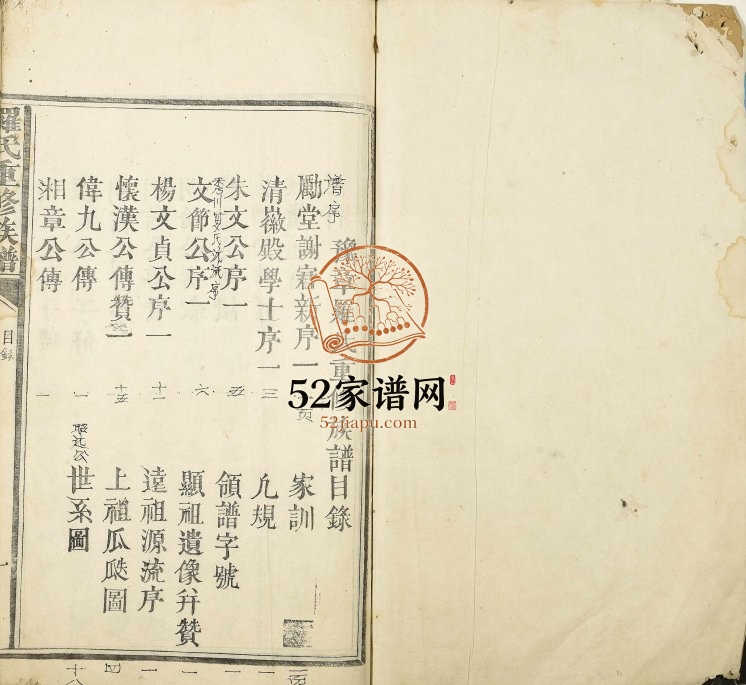 豫章羅氏重修族譜目錄
譜序
勵堂謝寤新序一
家訓
清薇殿學士序一 三
凢規
朱文公序一 五
領譜字號
文節公序一 六
顯祖遺像并贊
楊文貞公序一 十一
遠祖源流序
懷漢公傳贊一 十五
上祖瓜瓞圖
偉九公傳 一
世系圖
湘章公傳 一
羅氏重修族譜
目錄
一
52家谱网
52jiapu.com